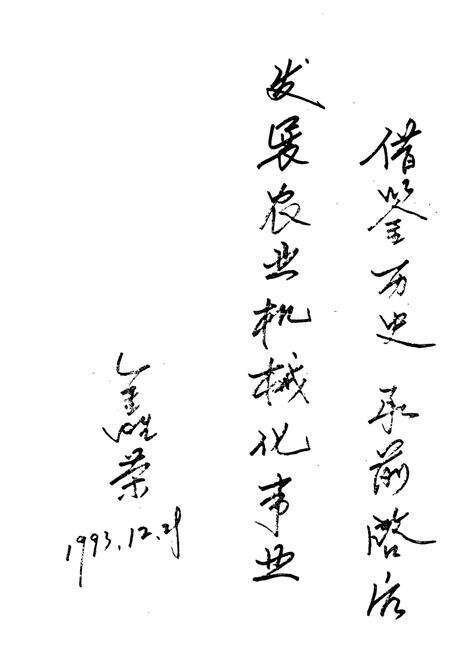 借鉴历史 承前启后
发展农业机械化事业
荣
1993.12.21